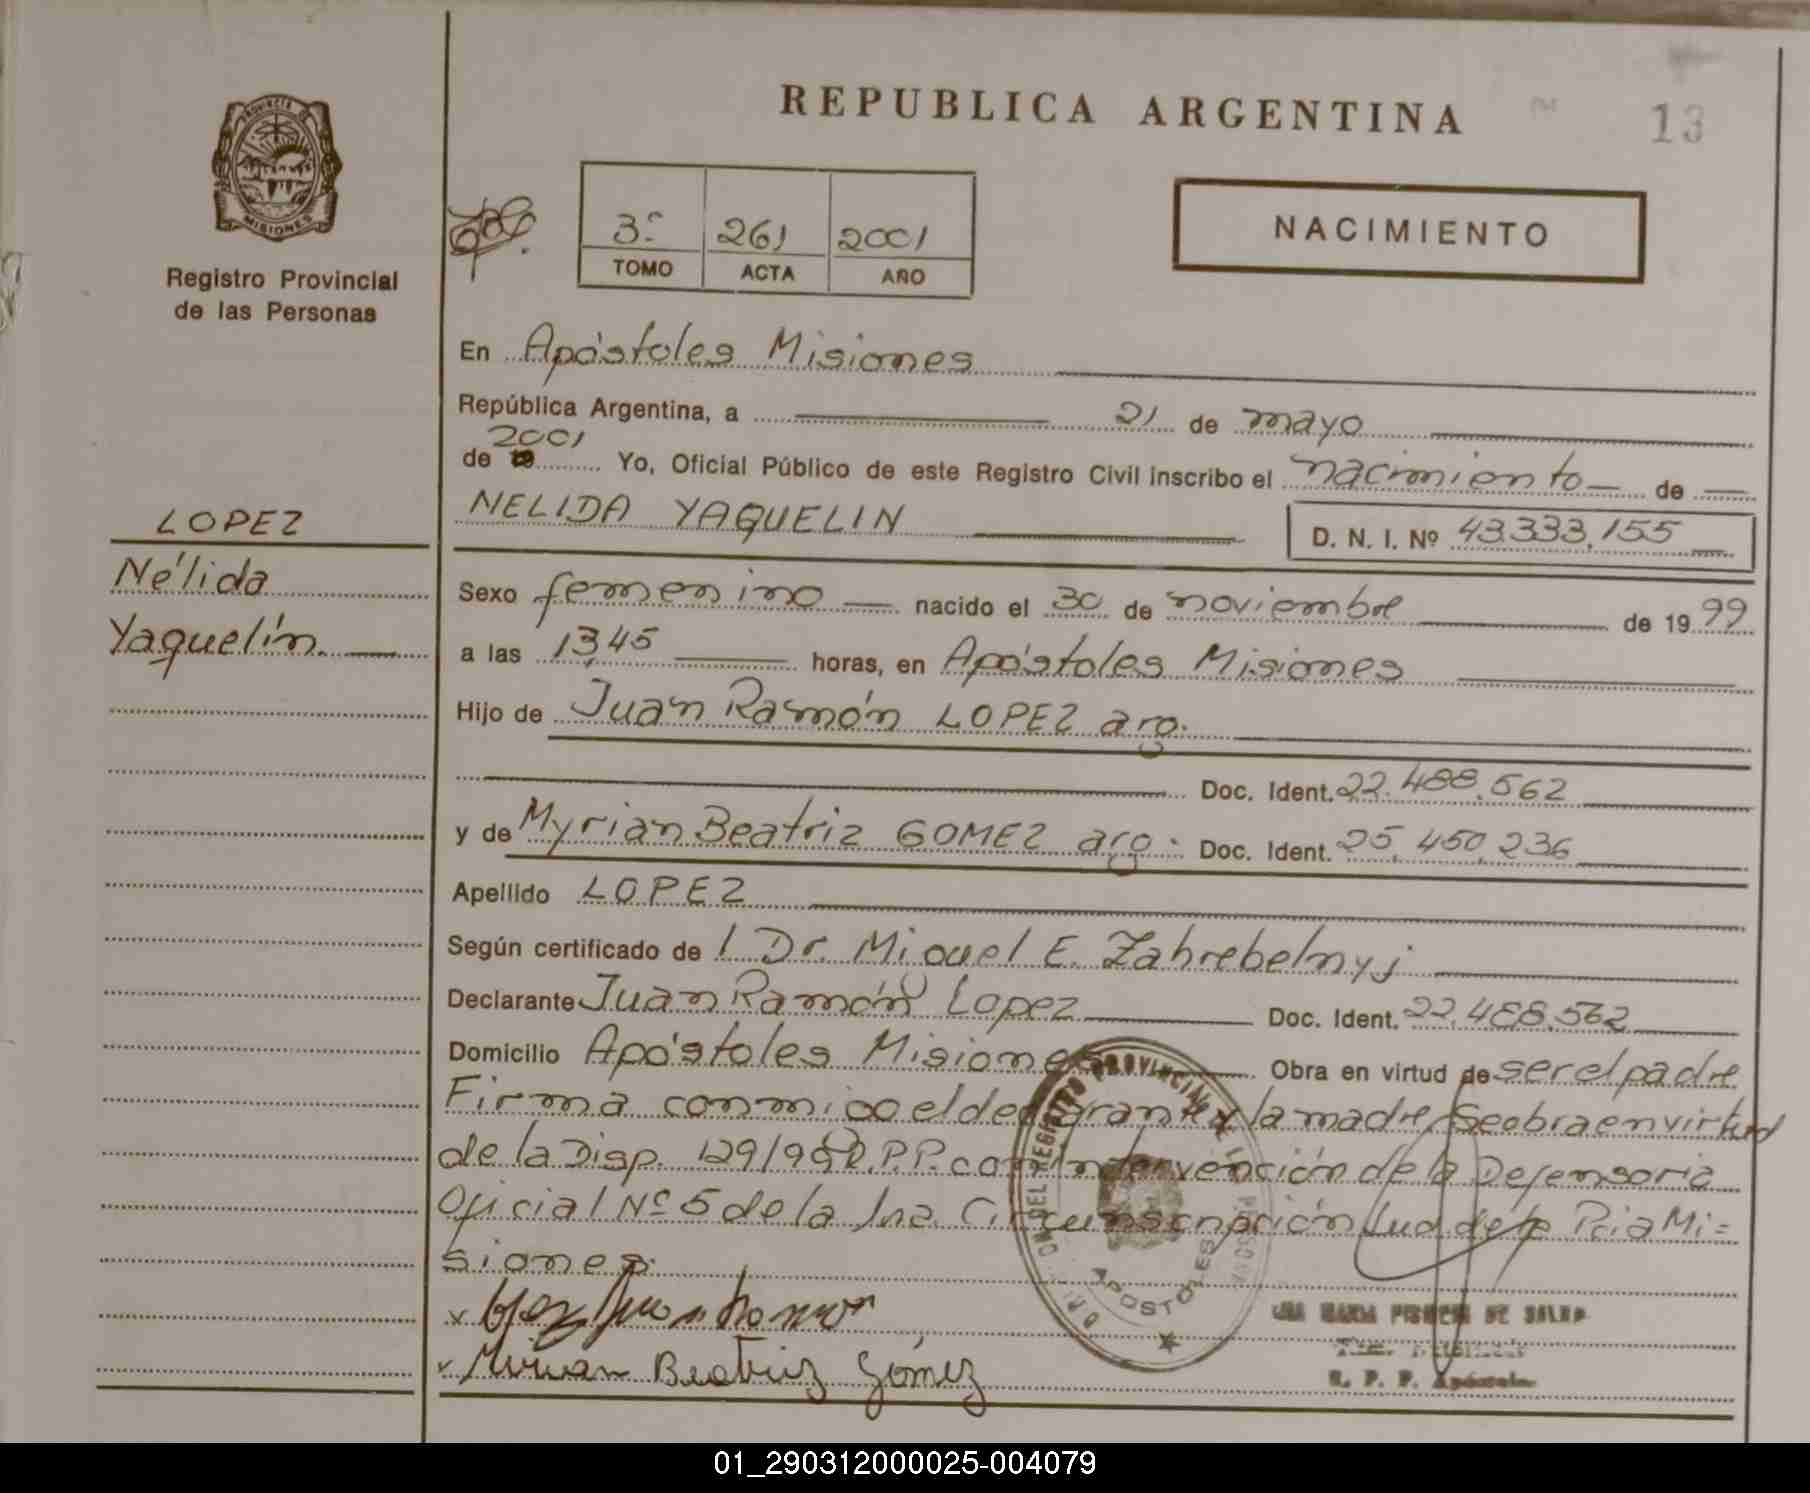 REPUBLICA ARGENTINA
13
PROVINCIA DE
MISIONES
Registro Provincial
de las Personas
3º 261 2001
TOMO ACTA AÑO
NACIMIENTO
LOPEZ
Nélida
Yaquelín.
En Apóstoles Misiones
República Argentina, a 21 de mayo
2001
de 19 Yo, Oficial Público de este Registro Civil inscribo el nacimiento de
NELIDA YAQUELIN D. N. I. Nº 43.333.155
Sexo femenino nacido el 30 de noviembre de 1999
a las 13,45 horas, en Apóstoles Misiones
Hijo de Juan Ramón LOPEZ arg.
Doc. Ident. 22.488.562
y de Myrian Beatriz GOMEZ arg. Doc. Ident. 25.450.236
Apellido LOPEZ
Según certificado de l Dr. Miguel E. Zahrebelnyj
Declarante Juan Ramón Lopez Doc. Ident. 22.488.562
Domicilio Apóstoles Misiones Obra en virtud de ser el padre
Firma conmigo el declarante y la madre, Se obra en virtud
de la Disp. 129/98 D.P.P. con intervención de la Defensoria
Oficial Nº 5 de la 1ra. Circunscripción Jud. de la Pcia Mi=
siones.
x
x Mirian Beatriz Gómez
DEL REGISTRO PROVINCIAL DE LAS PERSONAS
APOSTOLES
R. P. P. Apóstoles
01_290312000025-004079